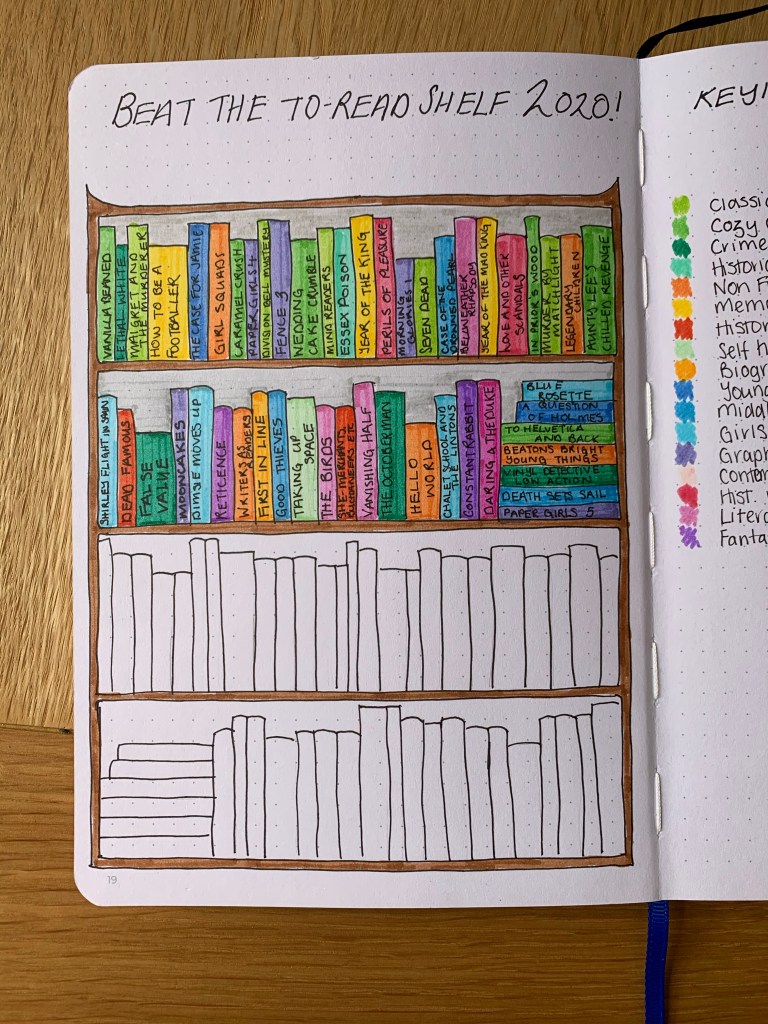 BEAT THE TO-READ SHELF 2020!
VANILLA BEANED
LETHAL WHITE
MAIGRET AND
THE MURDERER
HOW TO BE A
FOOTBALLER
THE CASE FOR JAMIE
GIRL SQUADS
CARAMEL CRUSH
PAPER GIRLS 4
DIVISION BELL MYSTERY
FENCE 3
WEDDING
CAKE CRUMBLE
MIND READERS
ESSEX POISON
YEAR OF THE KING
PERILS OF PLEASURE
MORNING
GLORIES
SEVEN DEAD
CASE OF THE
DROWNED PEARL
BELLWEATHER
RHAPSODY
YEAR OF THE MAD KING
LOVE AND OTHER
SCANDALS
IN PRIOR'S WOOD
MURDER BY
MATCHLIGHT
LEGENDARY
CHILDREN
AUNTY LEE'S
CHILLED REVENGE
SHIRLEY FLIGHT IN SPAIN
DEAD FAMOUS
FALSE
VALUE
MOONCAKES
DIMSIE MOVES UP
RETICENCE
WRITERS AS
READERS
FIRST IN LINE
GOOD THIEVES
TAKING UP
SPACE
THE BIRDS
SHE-MERCHANTS,
BUCCANEERS ETC
VANISHING HALF
THE OCTOBER MAN
HELLO
WORLD
CHALET SCHOOL AND
THE LINTONS
CONSTANT RABBIT
DARING & THE DUKE
BLUE
ROSETTE
A QUESTION
OF HOLMES
TO HELVETICA
AND BACK
BEATONS BRIGHT
YOUNG THINGS
VINYL DETECTIVE
LOW ACTION
DEATH SETS SAIL
PAPER GIRLS 5
19
KEY
Classic
Cozy
Crime
Historic
Non F
Memo
Histor
Self h
Biogr
Young
Middl
Girls
Graph
Conte
Hist.
Litera
Fanta